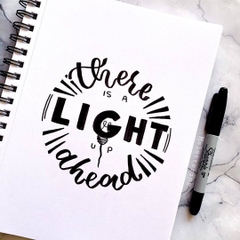 there
IS A
LIGHT
UP
ahead
Sharpie